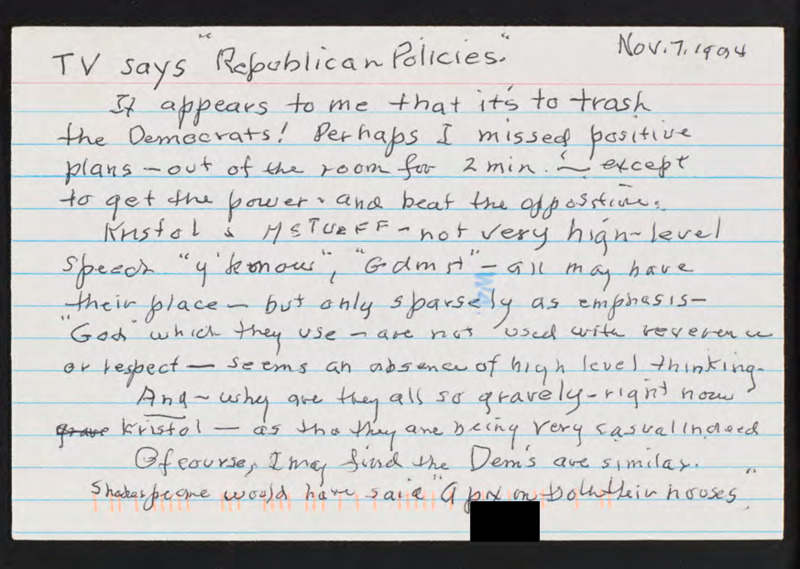 Nov. 7, 1994
TV says "Republican Policies."
It appears to me that it's to trash
the Democrats! Perhaps I missed positive
plans — out of the room for 2 min. — except
to get the power - and beat the
Kristol & — not very high-level
speech "y'know", "Gdmit" — all may have
their place — but only sparsely as emphasis —
"God" which they use — are not used with reverence
or respect — seems an absence of high level thinking.
And — why are they all so gravely - right now
Kristol — as tho they are being very casual indeed
Of course, I may find the Dem's are similar.
Shakespeare would have said "a pox on both their houses"